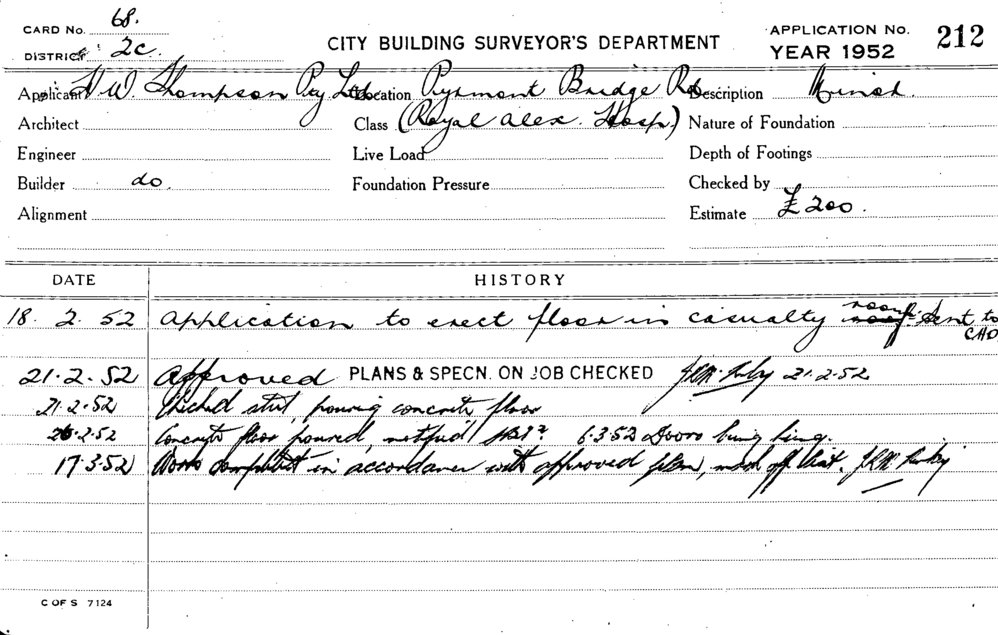 CARD No. 68.
DISTRICT 2C.
CITY BUILDING SURVEYOR'S DEPARTMENT
APPLICATION No. 212
YEAR 1952
Applicant H. W. Thompson Pty Ltd Location Pyrmont Bridge Rd Description Minor.
Architect Class (Royal Alex. Hosp.) Nature of Foundation
Engineer Live Load Depth of Footings
Builder do. Foundation Pressure Checked by
Alignment Estimate £200.
DATE HISTORY
18. 2. 52 Application to erect floor in casualty roof. Sent to
21.2.52 Approved PLANS & SPECN. ON JOB CHECKED 21.2.52
21.2.52 Checked steel, pouring concrete floor
26.2.52 Concrete floor poured, 6.3.52 Doors being hung.
17.3.52 Work completed in accordance with approved plan, mark off list.
C OF S 7124